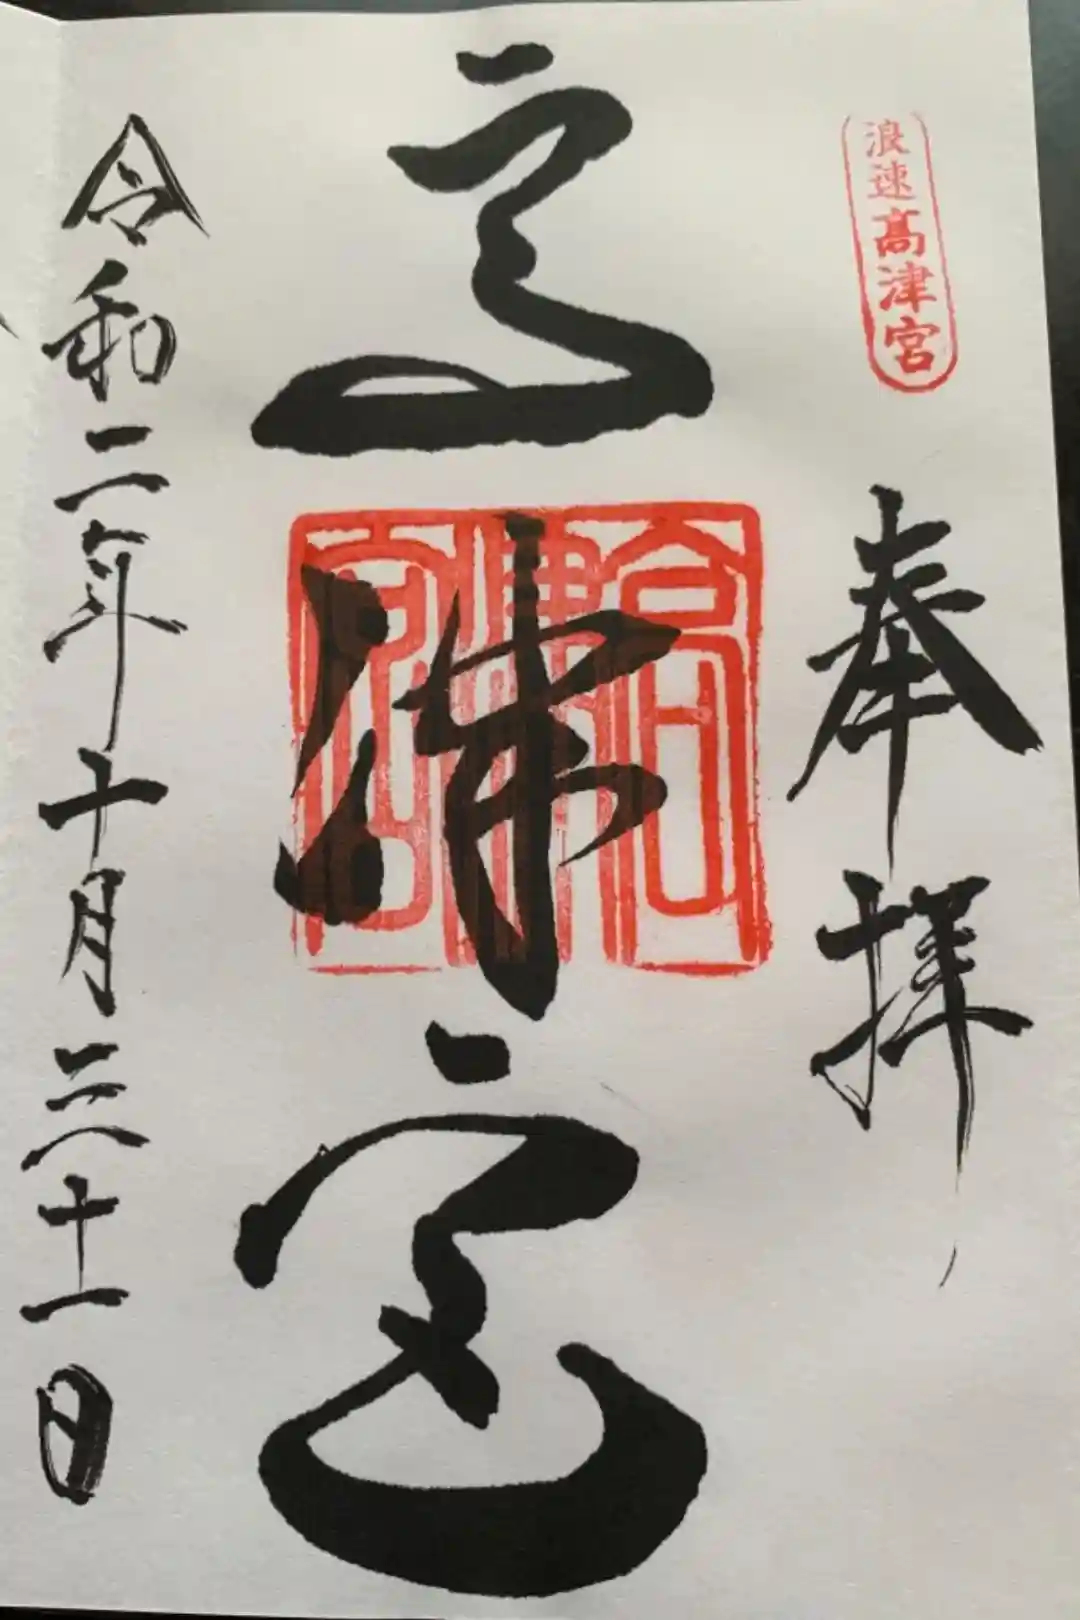 浪速高津宮
奉拝
高津宮
高津宮
令和二年十月三十一日